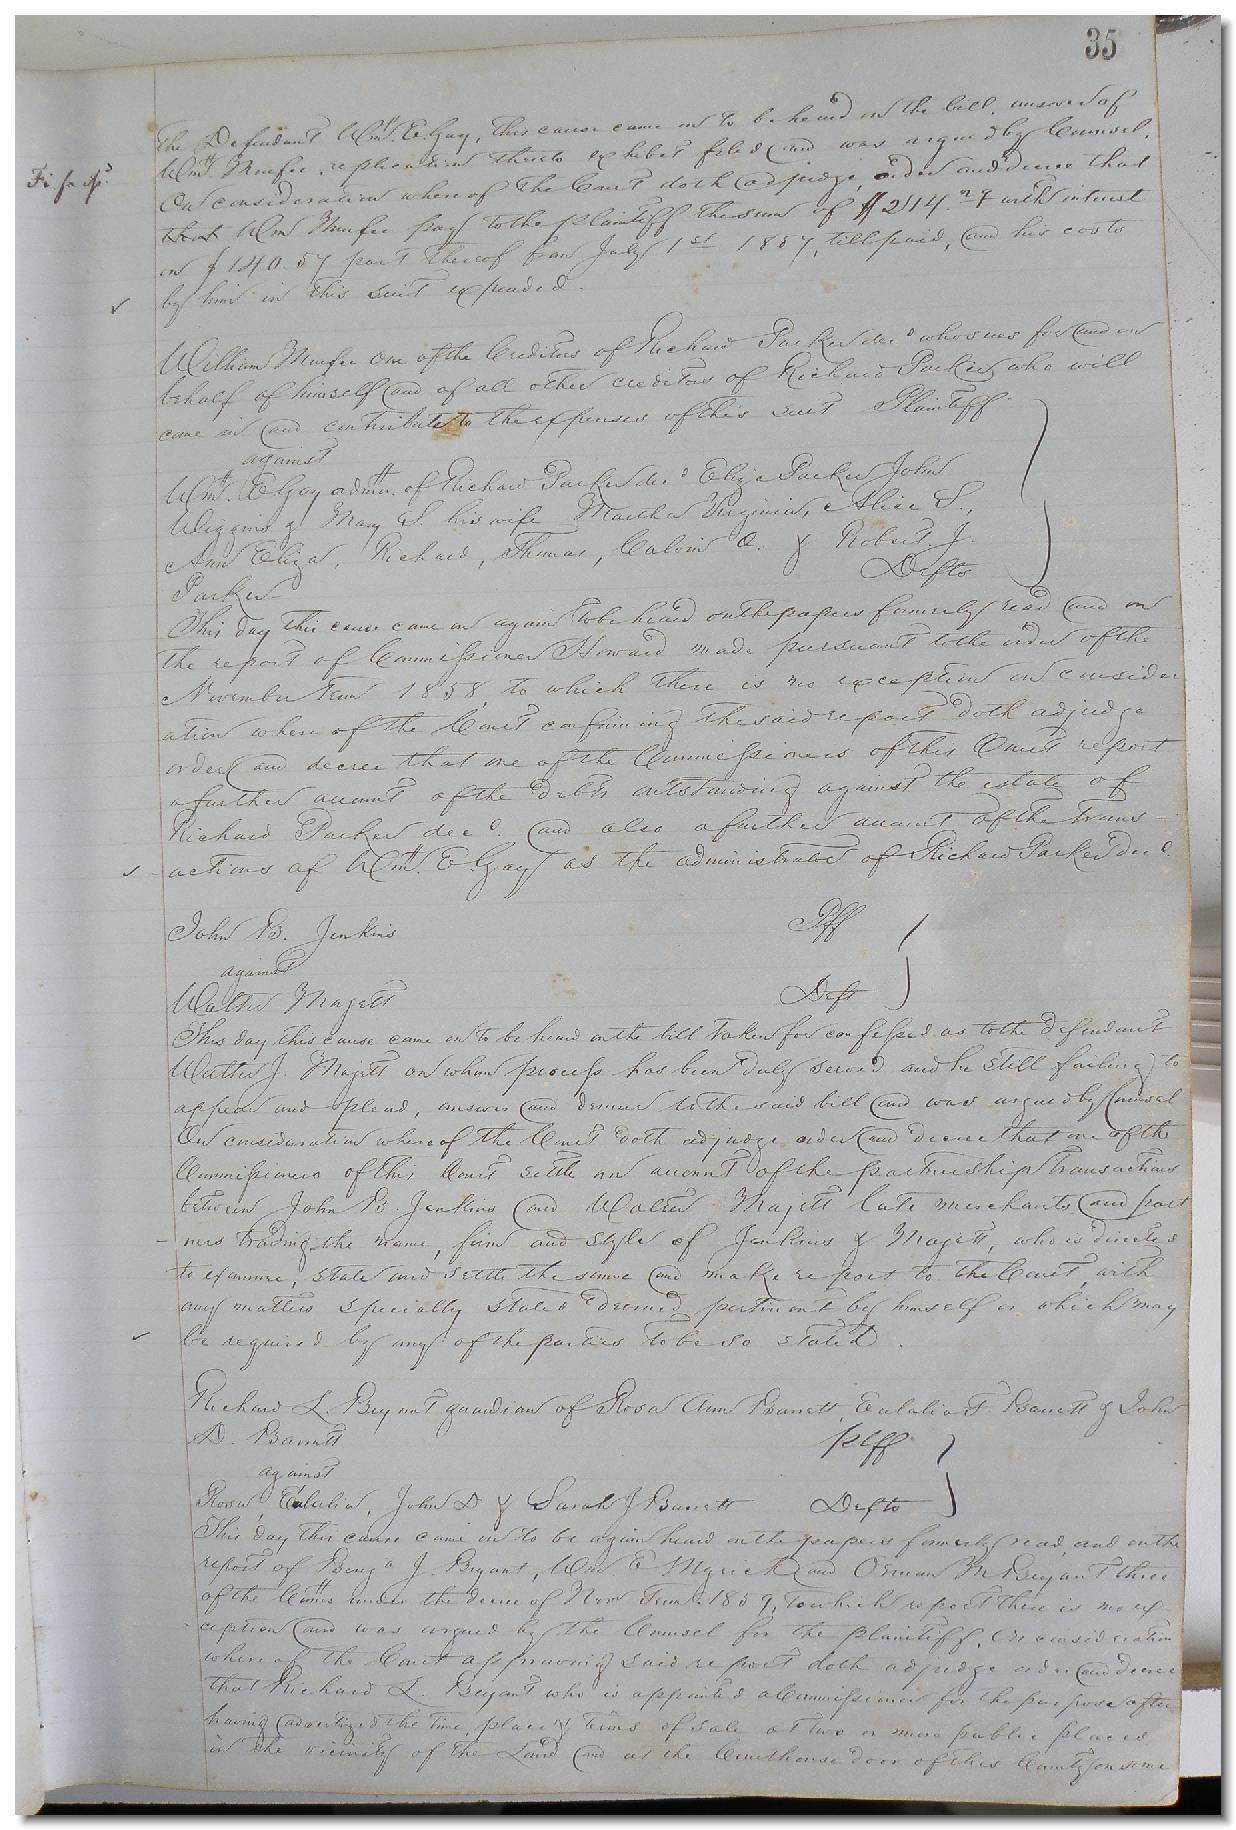 35
The Defendant Wm. E. Gay, this cause came on to be heard on the bill, answer of
Wm. Murfee, replication thereto exhibit filed and was argued by Counsel.
Fi. fa. ifs.
On consideration whereof the Court doth adjudge, order and decree that
Wm Murfee pay to the plaintiff the sum of $214. with interest
on $140.57 part thereof from July 1st 1857, till paid, and his costs
by him in this suit expended.
William Murfee one of the Creditors of Richard Parker decd who sues for and on
behalf of himself and of all other creditors of Richard Parker who will
come in and contribute to the expenses of this suit Plaintiff
against
Wm. E Gay admr. of Richard Parker decd Eliza Parker John
Wiggins & Mary S. his wife Martha Virginia, Alice S.,
Ann Eliza, Richard, Thomas, Calvin C. & Robert J.
Parker Defts
This day this cause came on again to be heard on the papers formerly read and on
the report of Commissioner Howard made pursuant to the order of the
November Term 1858 to which there is no exception on consider
ation whereof the Court confirming the said report doth adjudge
order and decree that one of the Commissioners of this Court report
a further account of the debts outstanding against the estate of
Richard Parker decd. and also a further account of the trans-
actions of Wm. E. Gay as the administrator of Richard Parker decd.
John B. Jenkins Plff
against
Walter Majett Deft
This day this cause came on to be heard on the bill taken for confessed as to the defendant
Walter J. Majett on whom process has been duly served and he still failing to
appear and plead, answer and demur to the said bill and was argued by Counsel
On consideration whereof the Court doth adjudge order and decree that one of the
Commissioners of this Court settle an account of the partnership transactions
between John B. Jenkins and Walter Majett late merchants and part
ners trading the name, firm and style of Jenkins & Majett, who is directed
to examine, state and settle the same and make report to the Court, with
any matters specially stated deemed pertinent by himself or which may
be required by any of the parties to be so stated.
Richard L. Bryant guardian of Rosa Ann Barrett, Eulalia F. Barrett & John
D. Barrett Plff
against
Rosa Eulalia, John D & Sarah J Barrett Defts
This day this cause came on to be again heard on the papers formerly read, and on the
report of Benja J. Bryant, Wm E Myrick and Orman M Bryant three
of the Comrs under the decree of Novr Term 1859, to which report there is no ex
ception and was argued by the Counsel for the plaintiff. On consideration
whereof the Court approving said report doth adjudge order and decree
that Richard L. Bryant who is appointed a Commissioner for the purpose after
having advertized the time, place & terms of sale at two or more public places
in the vicinity of the Land and at the Courthouse door of this County on some